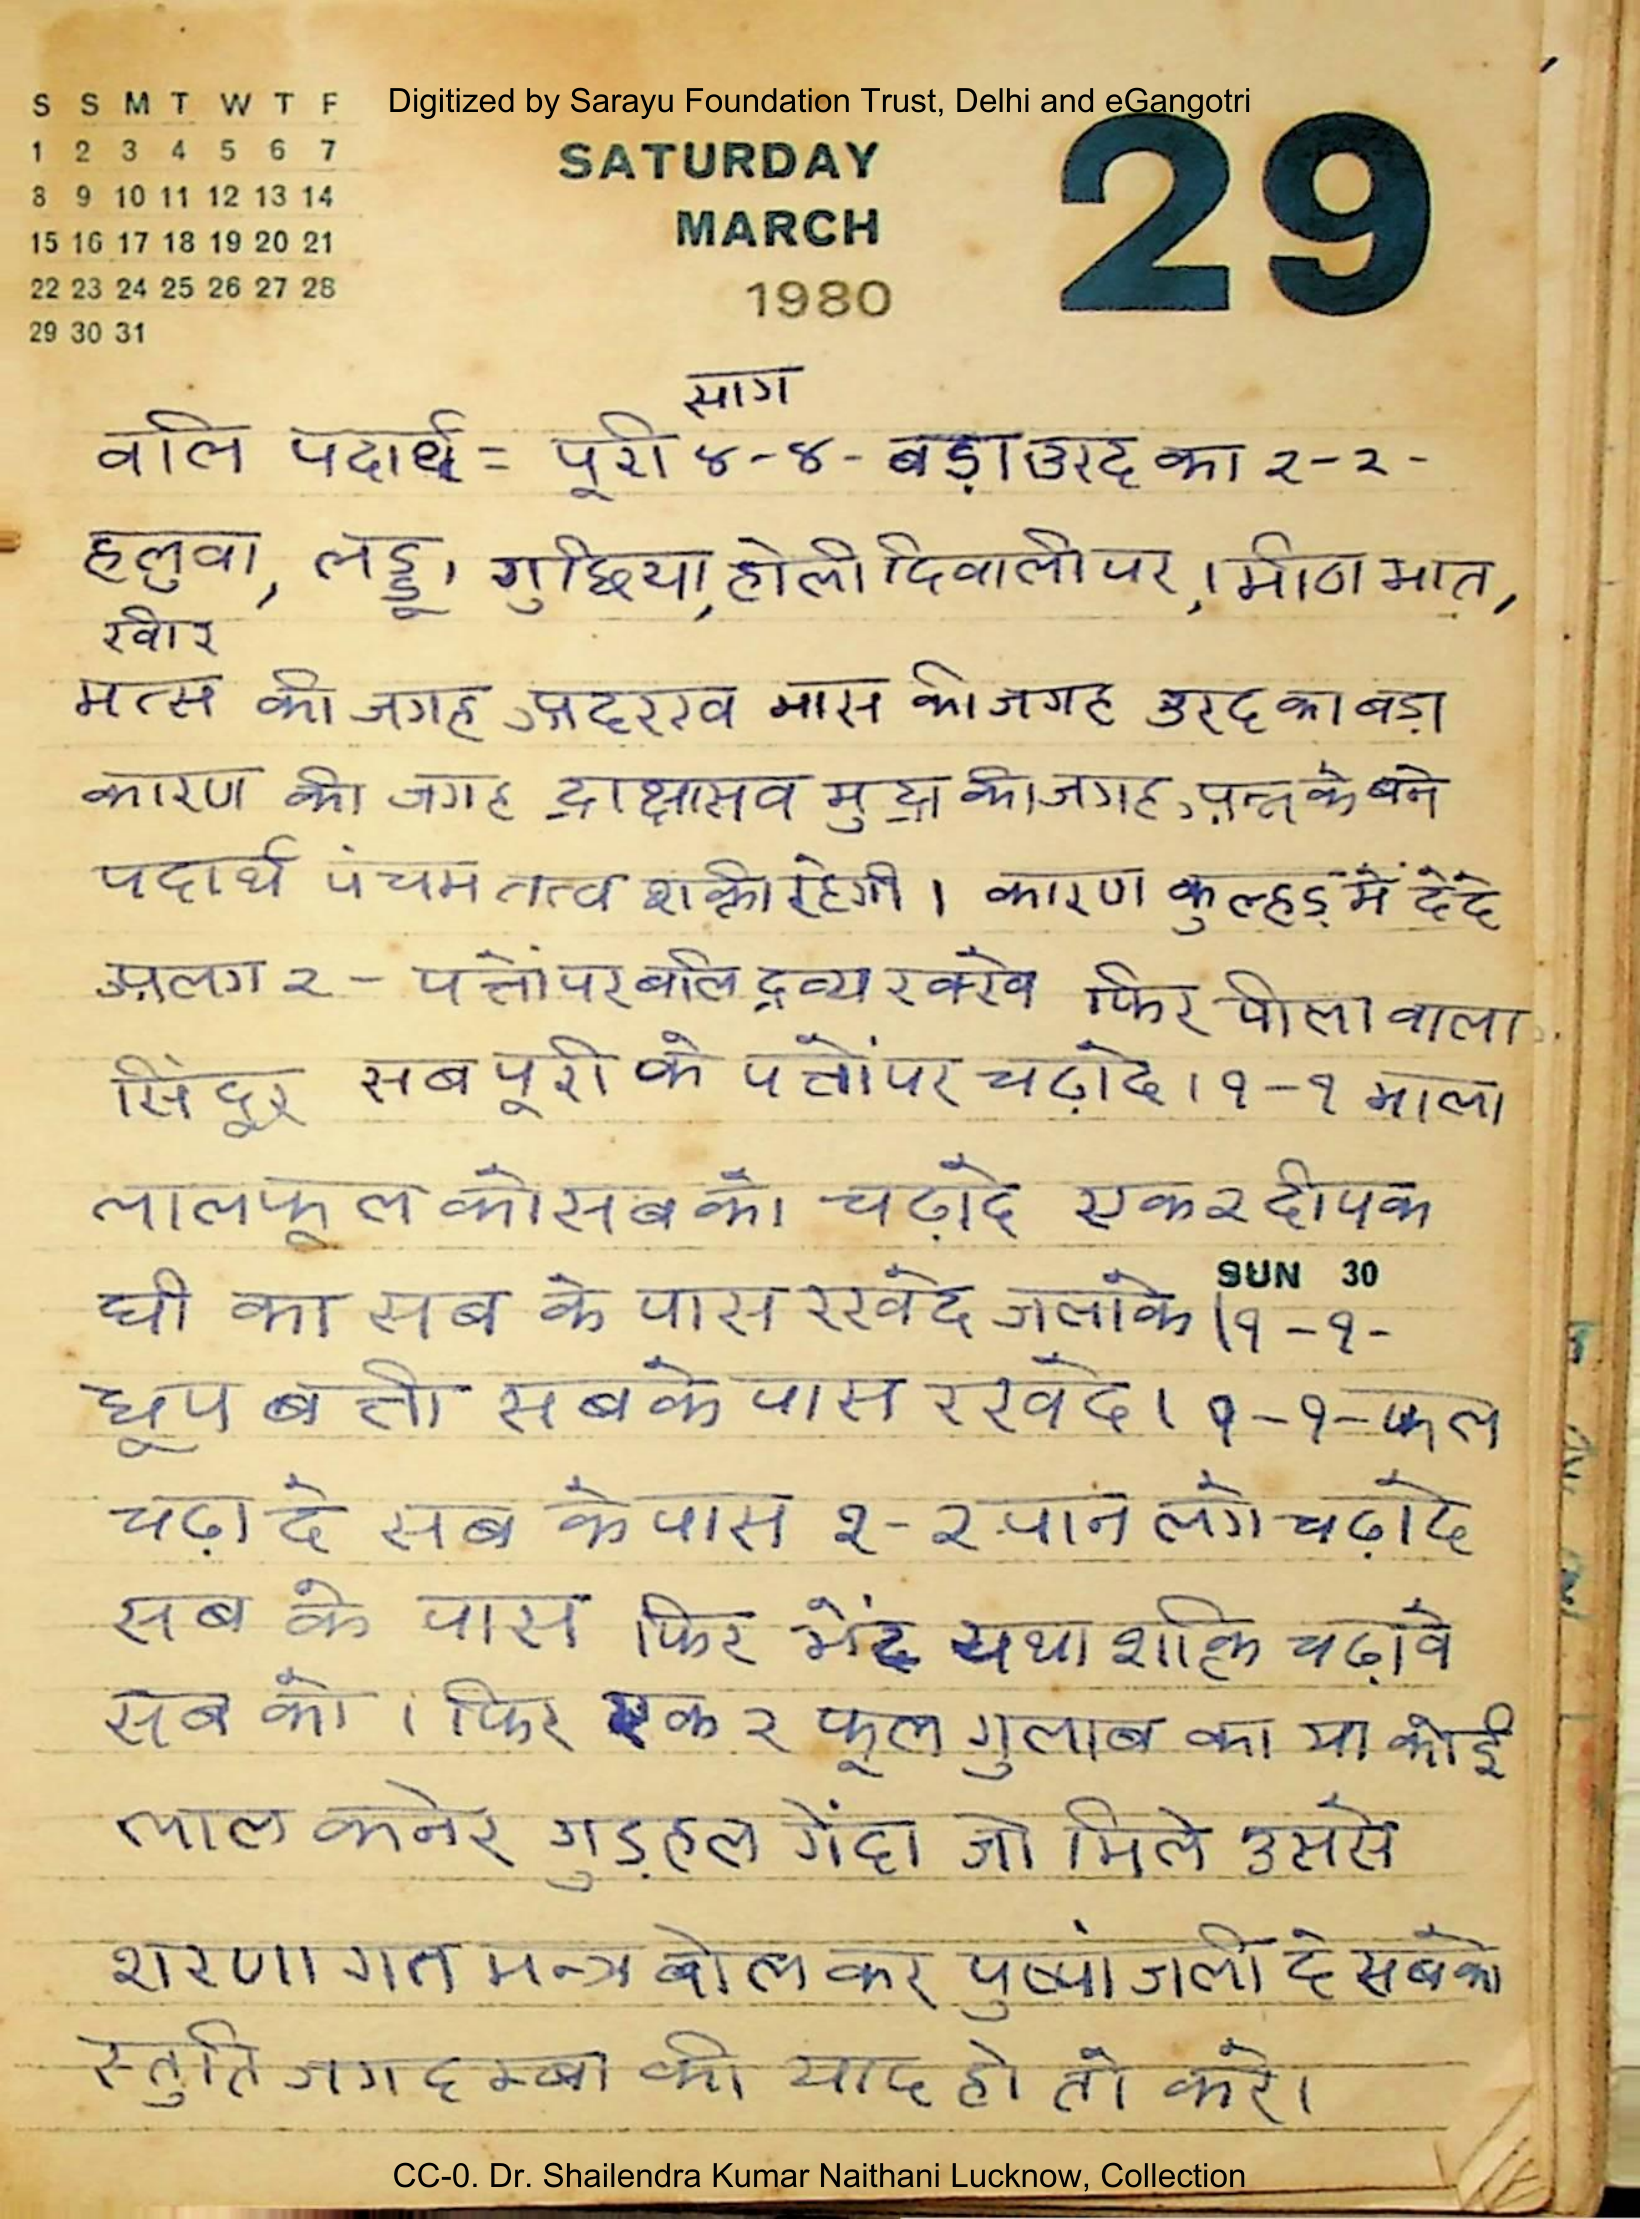 Digitized by Sarayu Foundation Trust, Delhi and eGangotri
S S M T W T F
1 2 3 4 5 6 7
8 9 10 11 12 13 14
15 16 17 18 19 20 21
22 23 24 25 26 27 28
29 30 31
SATURDAY
MARCH
1980
29
साग
वलि पदार्थ = पूरी ४-४- बड़ा उरद का २-२-
हलुवा, लड्डू, गुछिया, होली दिवाली पर, । मीठा भात,
खीर
मत्स की जगह अदरख मास की जगह उरद का बड़ा
कारण की जगह द्राक्षासव मुद्रा की जगह अन्न के बने
पदार्थ पंचम तत्व शक्ती रहेगी । कारण कुल्हड़ में देदे
अलग २- पत्तों पर बलि द्रव्य रक्खे फिर पीला वाला
सिंदूर सब पूरी के पत्तों पर चढ़ादे । १-१ माला
लाल फूल की सब को चढ़ादे एक २ दीपक
घी का सब के पास रखदे जलाके । १-१-
SUN 30
धूप बत्ती सब के पास रखदे । १-१- फल
चढ़ा दे सब के पास २-२ पान लगे चढ़ादे
सब के पास फिर भेंट यथा शक्ति चढ़ावे
सब को । फिर एक २ फूल गुलाब का या कोई
लाल कनेर गुड़हल गेंदा जो मिले उससे
शरणागत मन्त्र बोल कर पुष्पांजली दे सबको
स्तुति जगदम्बा की याद हो तो करे ।
CC-0. Dr. Shailendra Kumar Naithani Lucknow, Collection